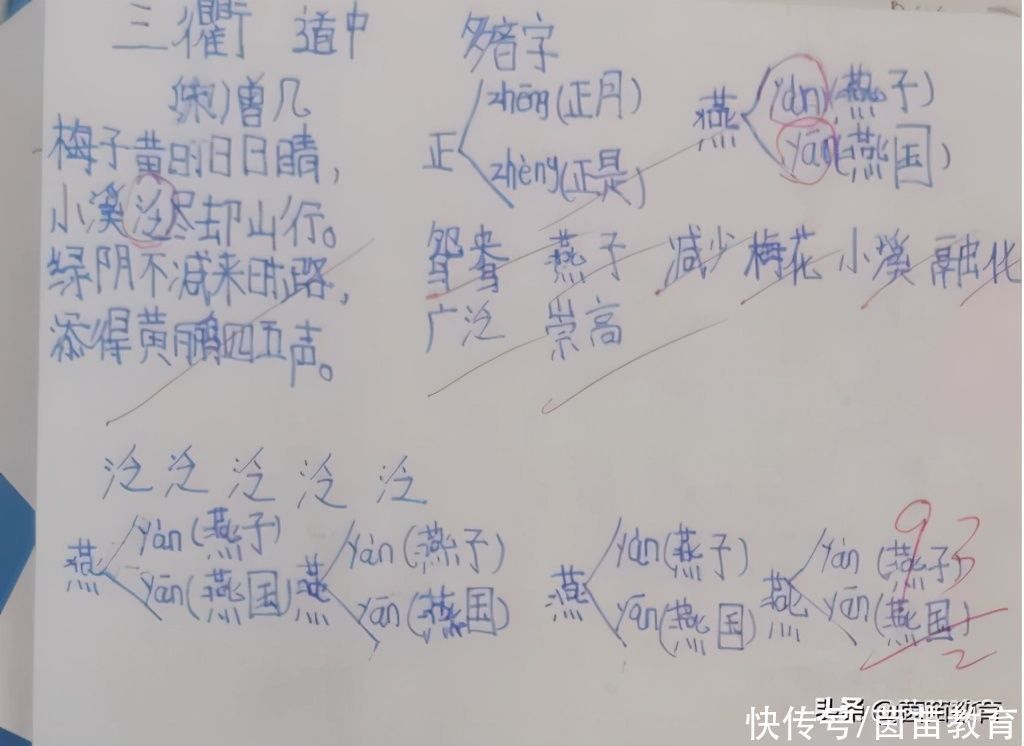 三衢道中
(宋)曾几
梅子黄时日日晴,
小溪泛尽却山行。
绿阴不减来时路,
添得黄鹂四五声。
多音字
正
zhēng(正月)
zhèng(正是)
燕
yàn(燕子)
yān(燕国)
鸳鸯 燕子 减少 梅花 小溪 融化
广泛 崇高
泛 泛 泛 泛 泛
燕
yàn(燕子)
yān(燕国)
燕
yàn(燕子)
yān(燕国)
燕
yàn(燕子)
yān(燕国)
燕
yàn(燕子)
yān(燕国)
93
2
头条 @茵苗教育
快传号/茵苗教育